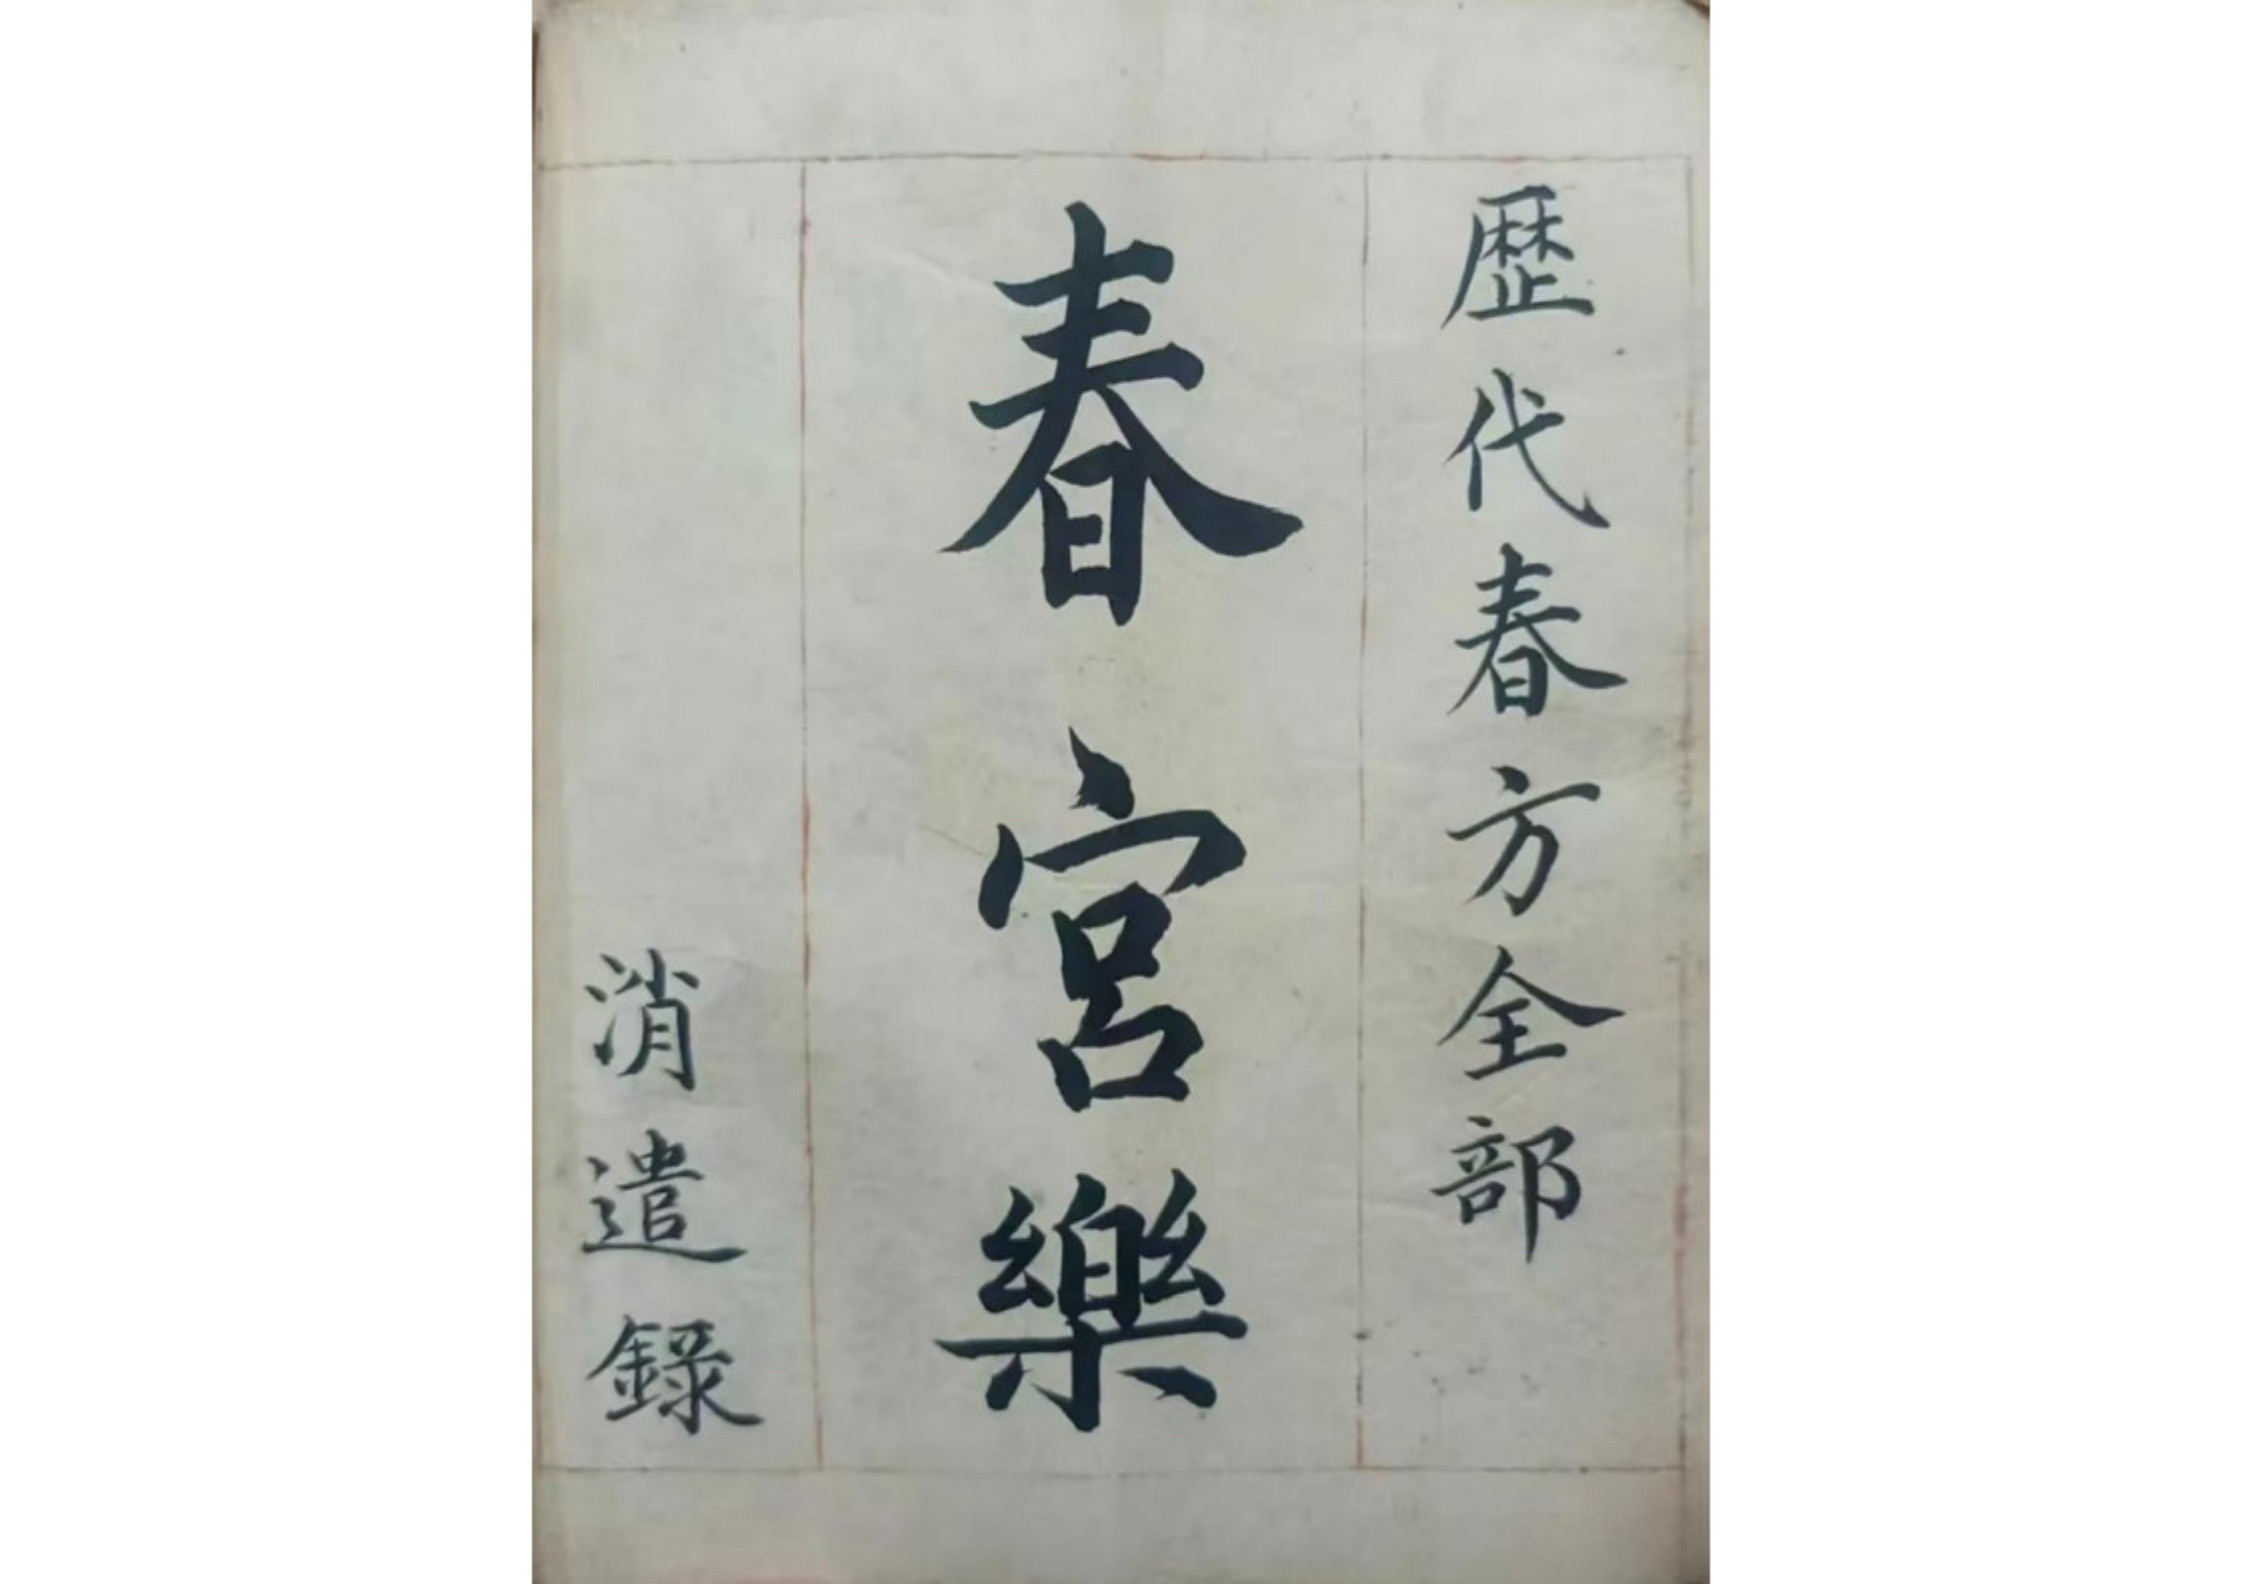 歷代春方全部
春宮樂
消遣錄